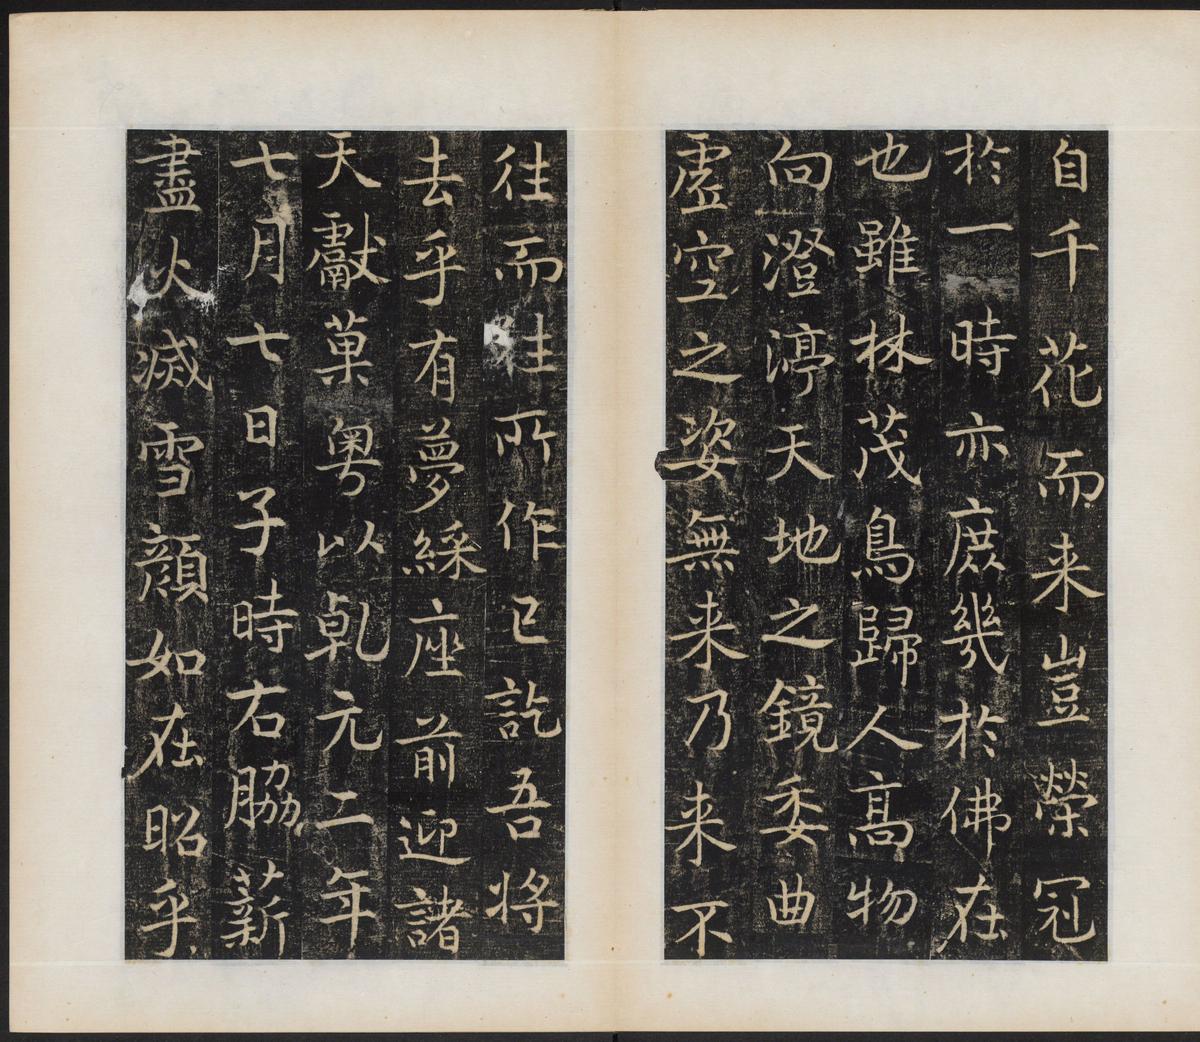 自千花而来豈榮冠
於一時亦庶幾於佛在
也雖林茂鳥歸人高物
向澄渟天地之鏡委曲
虛空之姿無来乃来不
往而往所作已訖吾将
去乎有夢綵座前迎諸
天獻菓粤以乹元二年
七月七日子時右脇薪
盡火滅雪顔如在昭乎